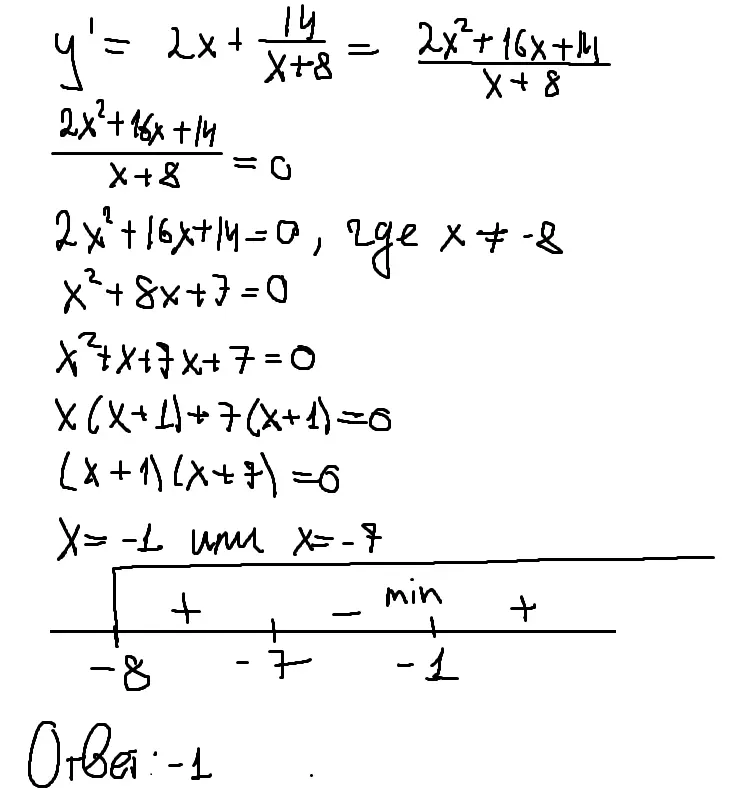 y' = 2x + 14/(x+8) = (2x²+16x+14)/(x+8)
(2x²+16x+14)/(x+8) = 0
2x²+16x+14=0, где x ≠ -8
x²+8x+7=0
x²+x+7x+7=0
x(x+1)+7(x+1)=0
(x+1)(x+7)=0
x=-1 или x=-7
+ - min +
-8 -7 -1
Ответ: -1